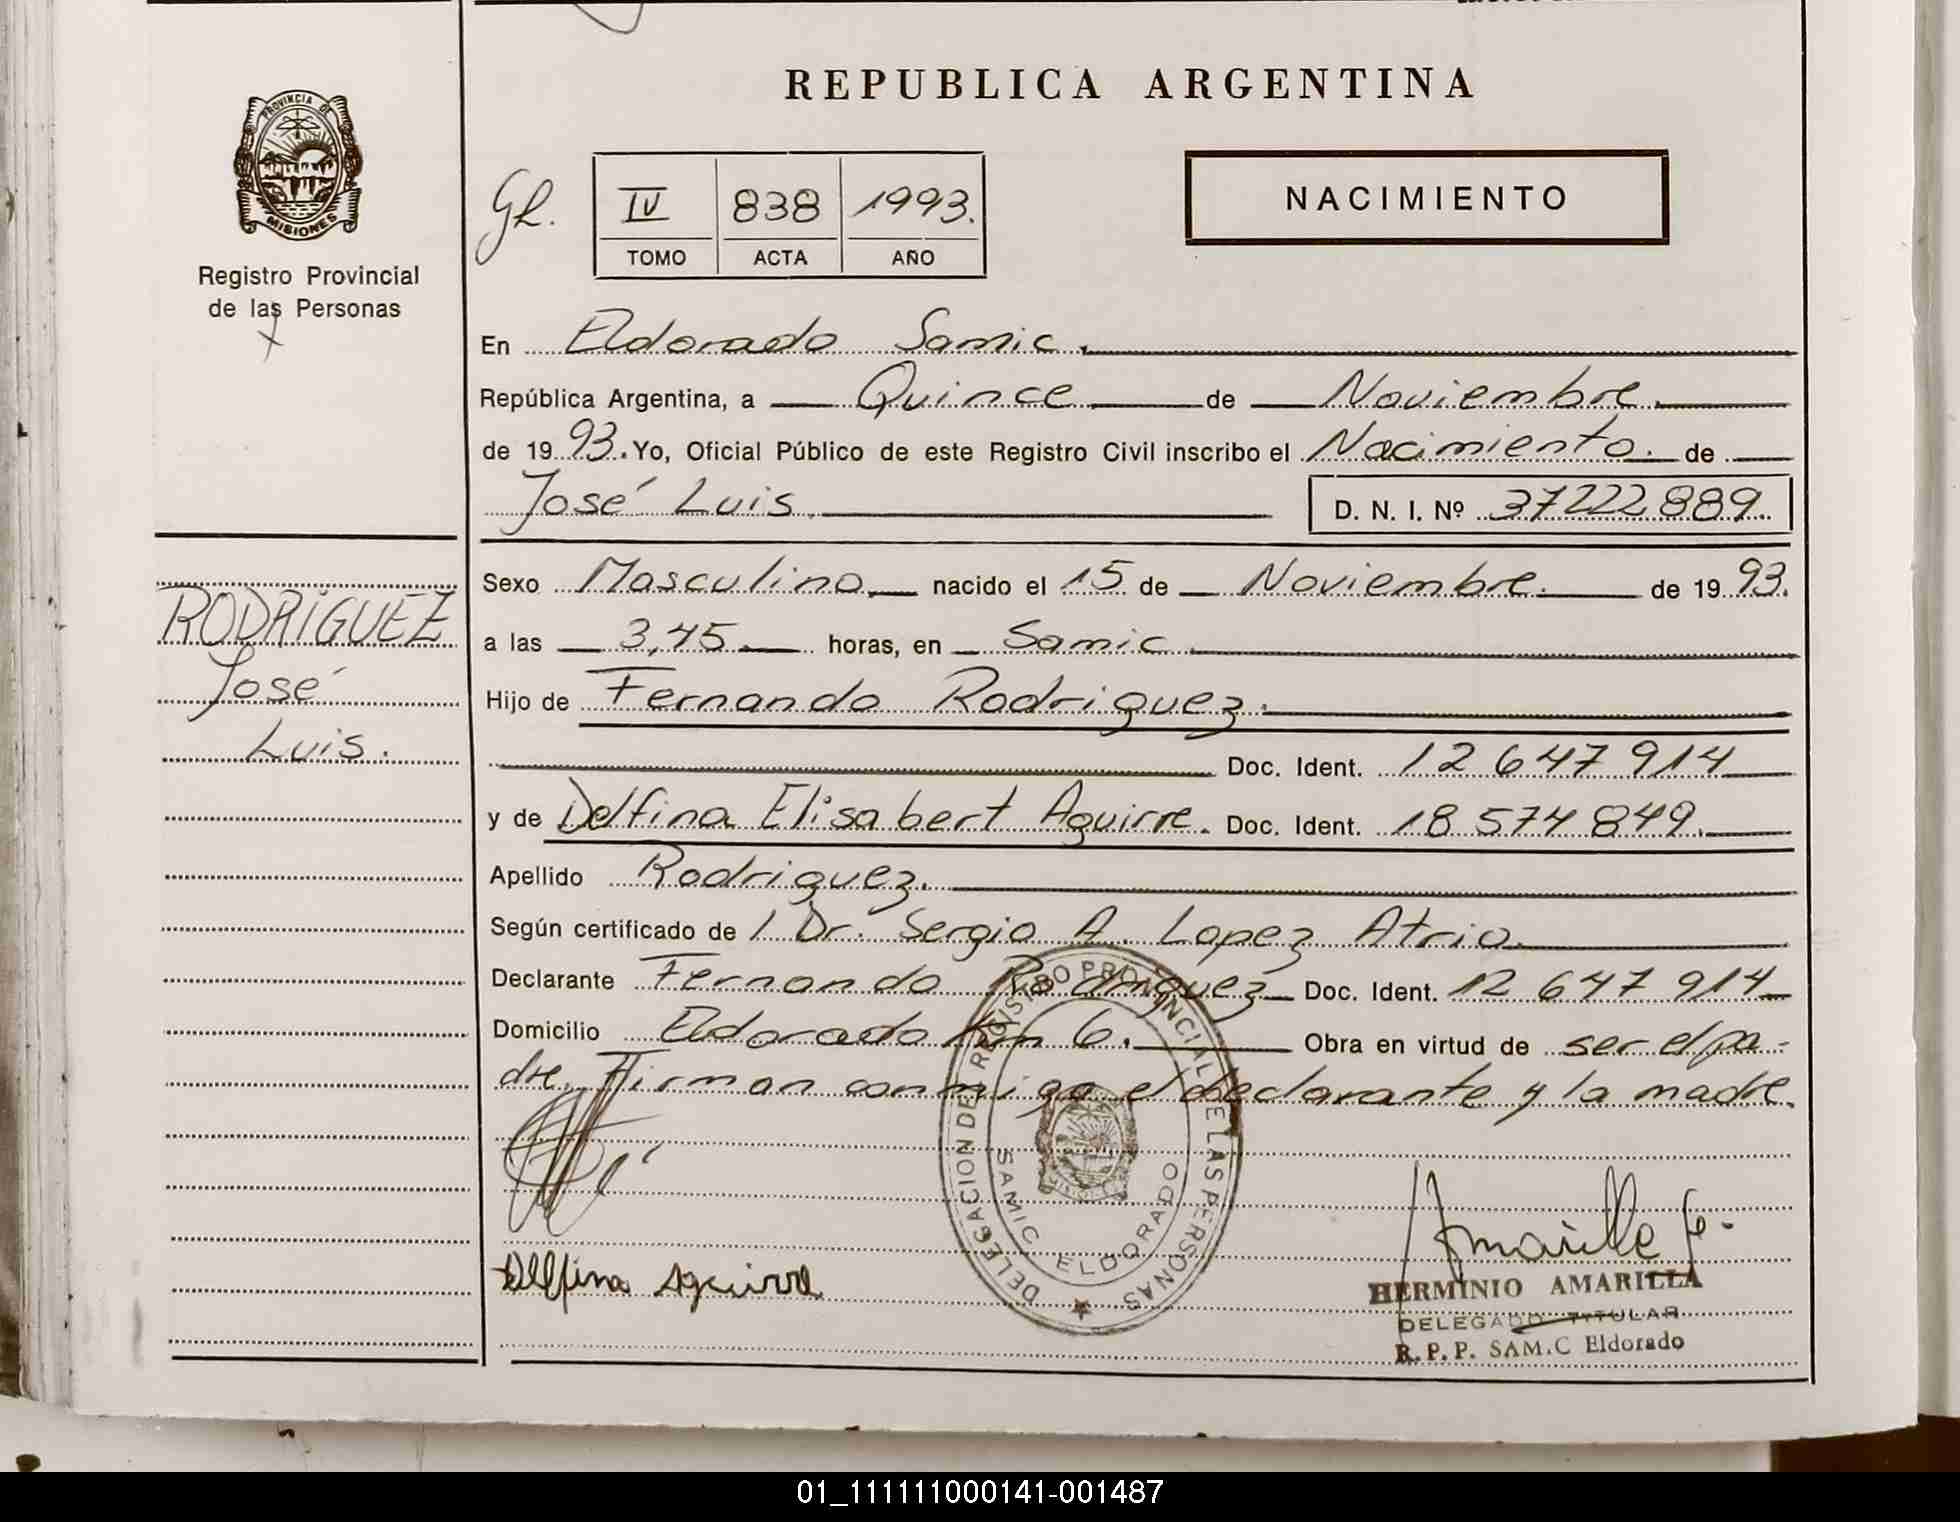 REPUBLICA ARGENTINA
PROVINCIA DE
MISIONES
Registro Provincial
de las Personas
GL.
IV 838 1993.
TOMO ACTA AÑO
NACIMIENTO
En Eldorado Samic.
República Argentina, a Quince de Noviembre.
de 1993. Yo, Oficial Público de este Registro Civil inscribo el Nacimiento. de
José Luis. D. N. I. Nº 37222889.
RODRIGUEZ
José
Luis.
Sexo Masculino nacido el 15 de Noviembre. de 1993.
a las 3,45 horas, en Samic.
Hijo de Fernando Rodriguez.
Doc. Ident. 12 647 914
y de Delfina Elisabert Aguirre. Doc. Ident. 18 574 849.
Apellido Rodriguez.
Según certificado de l Dr. Sergio A. Lopez Atrio.
Declarante Fernando Rodriguez Doc. Ident. 12 647 914
Domicilio Eldorado km 6. Obra en virtud de ser el pa-
dre. Firman conmigo el declarante y la madre.
DELEGACION DEL REGISTRO PROVINCIAL DE LAS PERSONAS
SAMIC ELDORADO
Delfina Aguirre
Amarilla
HERMINIO AMARILLA
DELEGADO TITULAR
R.P.P. SAM.C Eldorado
01_111111000141-001487